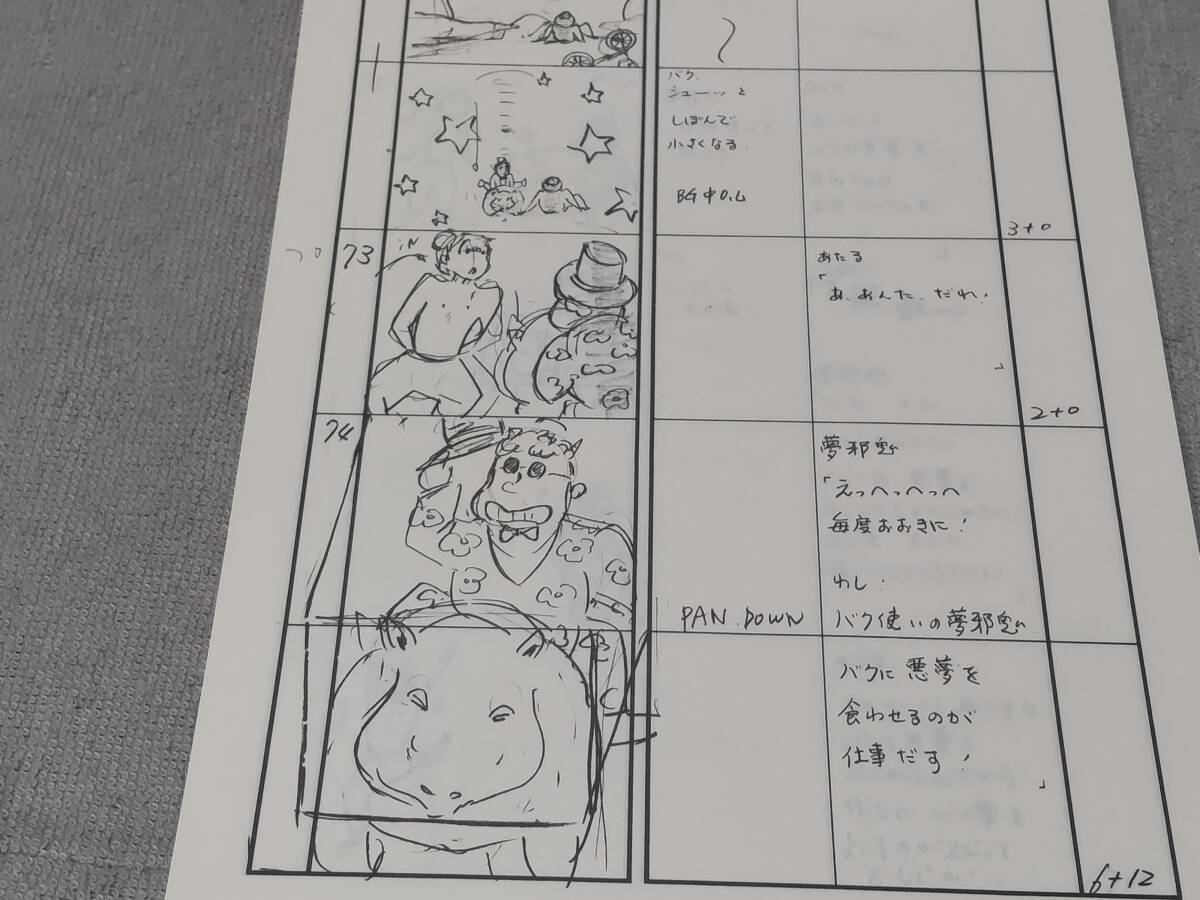 バク、
シューッと
しぼんで
小さくなる
BG中O.L
3+0
73
iN
あたる
「あ、あんた、だれ!
」
2+0
74
夢邪鬼
「えっへっへっへ
毎度おおきに!
わし、
PAN DOWN
バク使いの夢邪鬼
バクに悪夢を
食わせるのが
仕事だす!
」
6+12